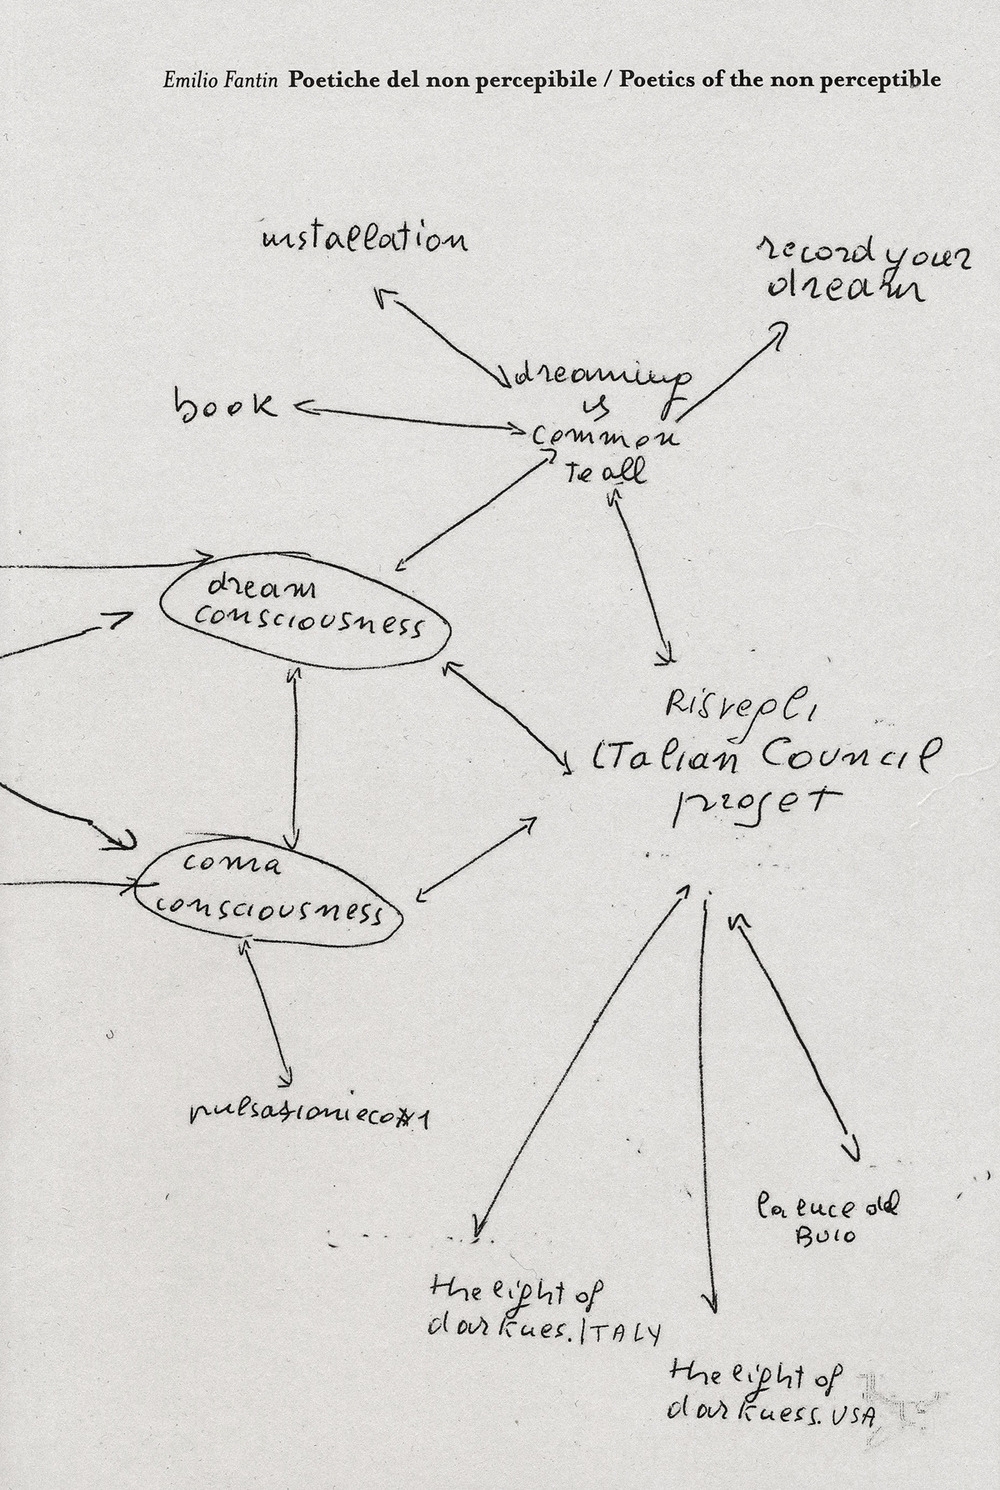 Emilio Fantin Poetiche del non percepibile / Poetics of the non perceptible
installation
record your
dream
dreaming
is
common
to all
book
dream
consciousness
Risvegli
ITalian Council
proget
coma
consciousness
pulsazioni eco#1
la luce del
BUIO
the light of
darknes. ITALY
the light of
darkness. USA